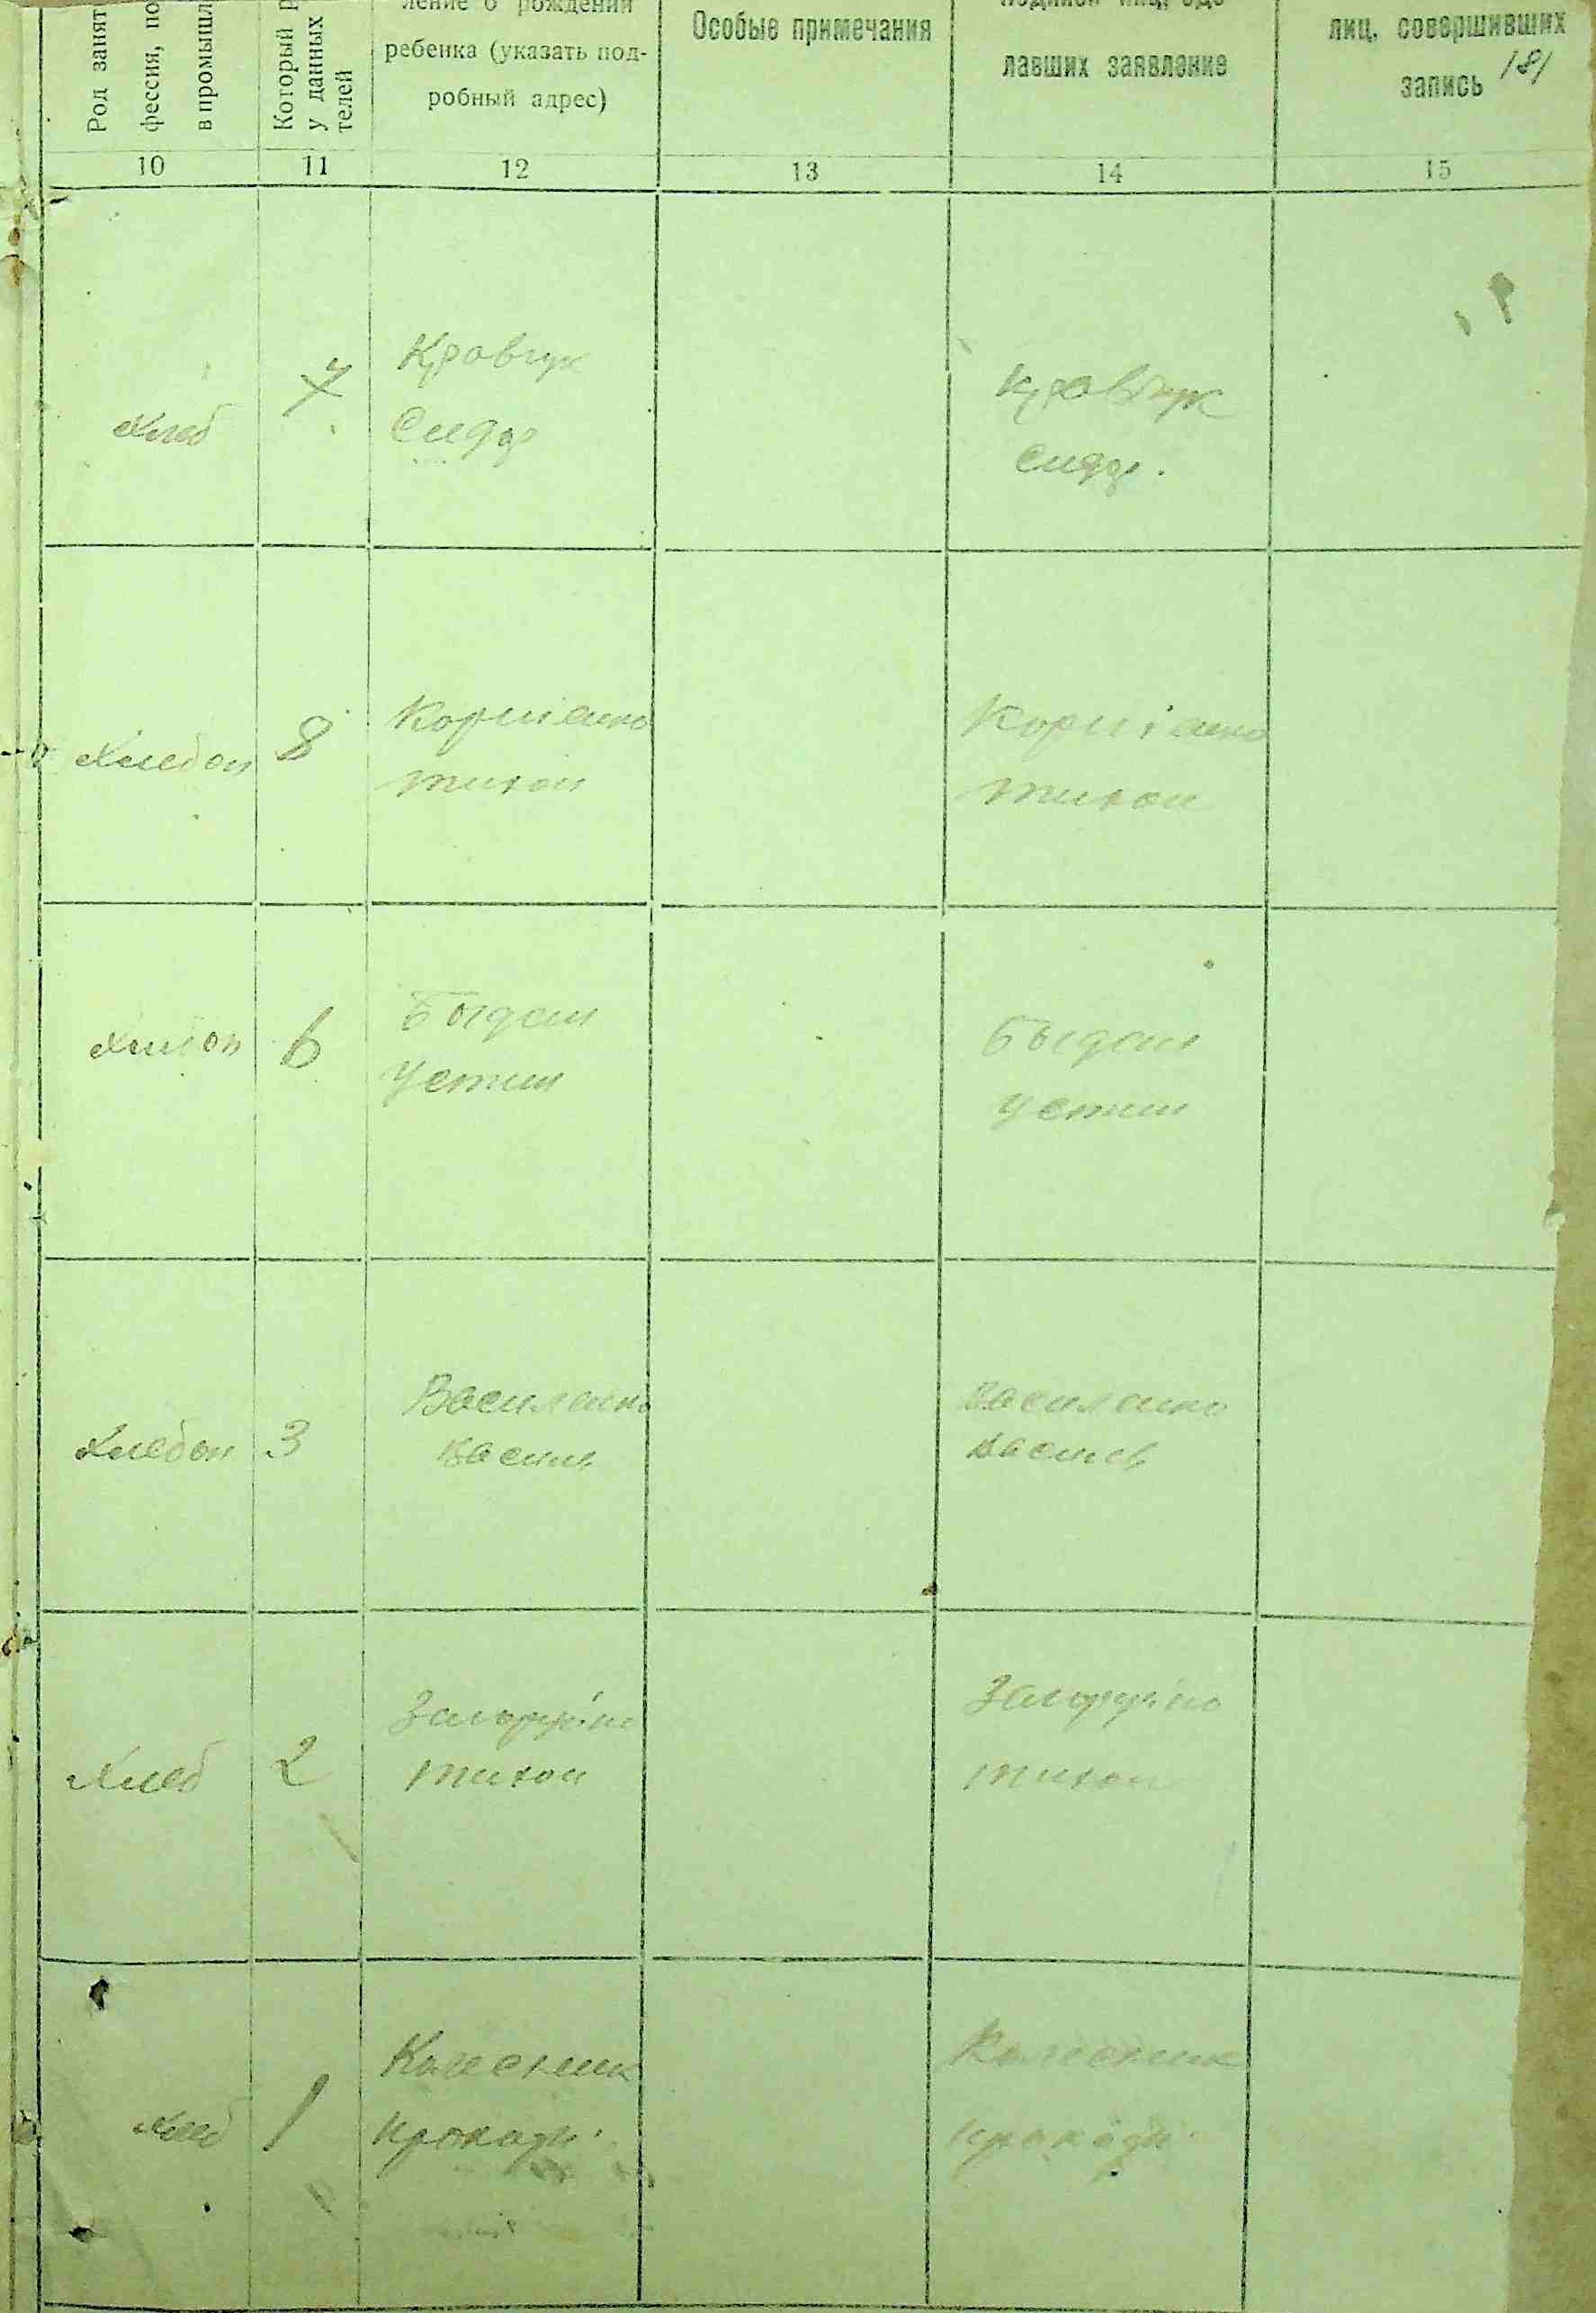 Род занят
фессия, по
в промышл
Который р
у данных
телей
ление о рождении
ребенка (указать под-
робный адрес)
Особые примечания
лавших заявление
лиц, совершивших
запись
181
10 11 12 13 14 15
Хлеб
7
Кравчук
Сидор
Кравчук
Сидор.
Хлебоп
8
Тихон
Тихон
Хлебоп
6
Богдан
Устин
Богдан
Устин
Хлебоп
3
Василенко
Васил
Василенко
Василь
Хлеб
2
Тихон
Тихон
Хлеб
1
Колесник
Колесник